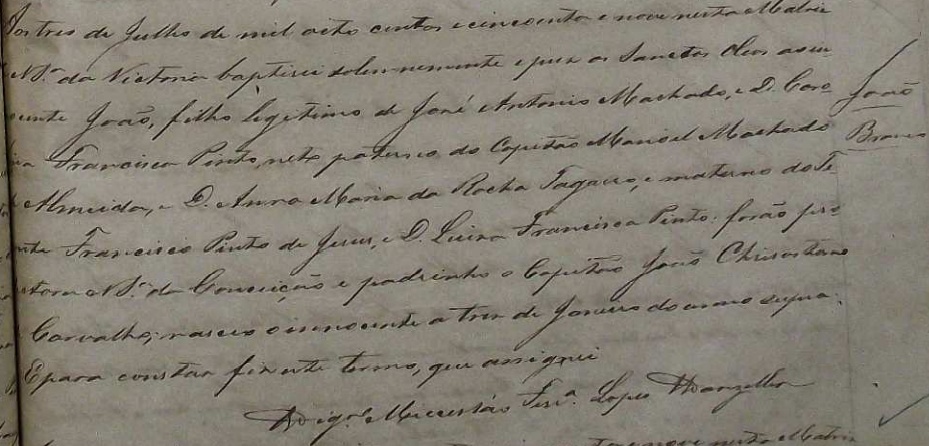 Aos tres de Julho de mil oito centos e cincoenta e nove nesta Matriz
N. Sª. da Victoria baptisei solemnemente e puz os Sanctos Oleos ao in-
ocente João, filho legitimo de José Antonio Machado, e D. Caro-
na Francisca Pinto, neto paterno do Capitão Manoel Machado
Almeida, e D. Anna Maria da Rocha e materno do Te-
nte Francisco Pinto de Jesus, e D. Luiza Francisca Pinto: forão pro-
tectora N. Sª. da Conceição e padrinho o Capitão João Chrisostomo
Carvalho; nasceo o innocente a tres de Janeiro do anno supra.
E para constar fiz este termo, que assignei
Lopes
João
Branco
e nove nesta Matriz